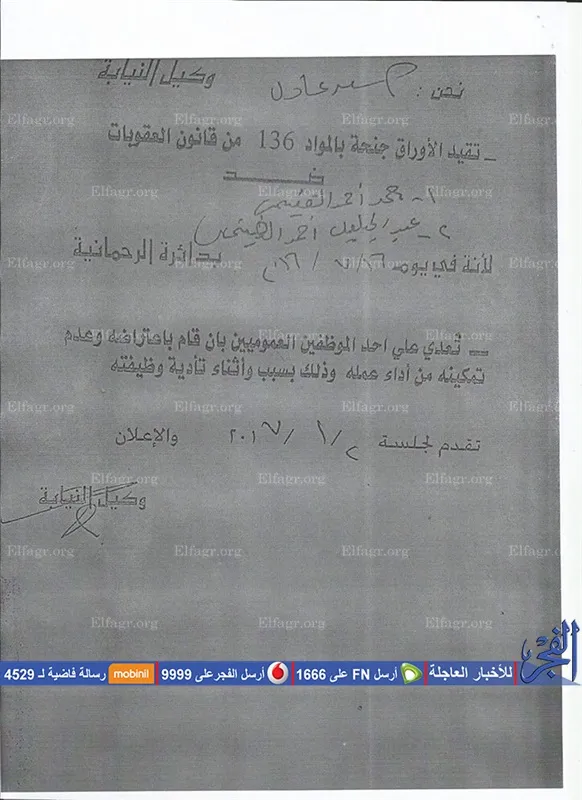 نحن : سمير عادل وكيل النيابة
ـ تقيد الأوراق جنحة بالمواد 136 من قانون العقوبات
ضد
١- محمد أحمد
٢- عبد الجليل أحمد
لأنة في يوم بدائرة الرحمانية
ـ تعدي علي احد الموظفين العموميين بان قام باعتراضه وعدم
تمكينه من أداء عمله وذلك بسبب وأثناء تأدية وظيفته
تقدم لجلسة ٢ / ١ / ٢٠١٧ والإعلان
وكيل النيابة
Elfagr.org
الفجر
للأخبار العاجلة أرسل FN على 1666 أرسل الفجر على 9999 mobinil رسالة فاضية لـ 4529